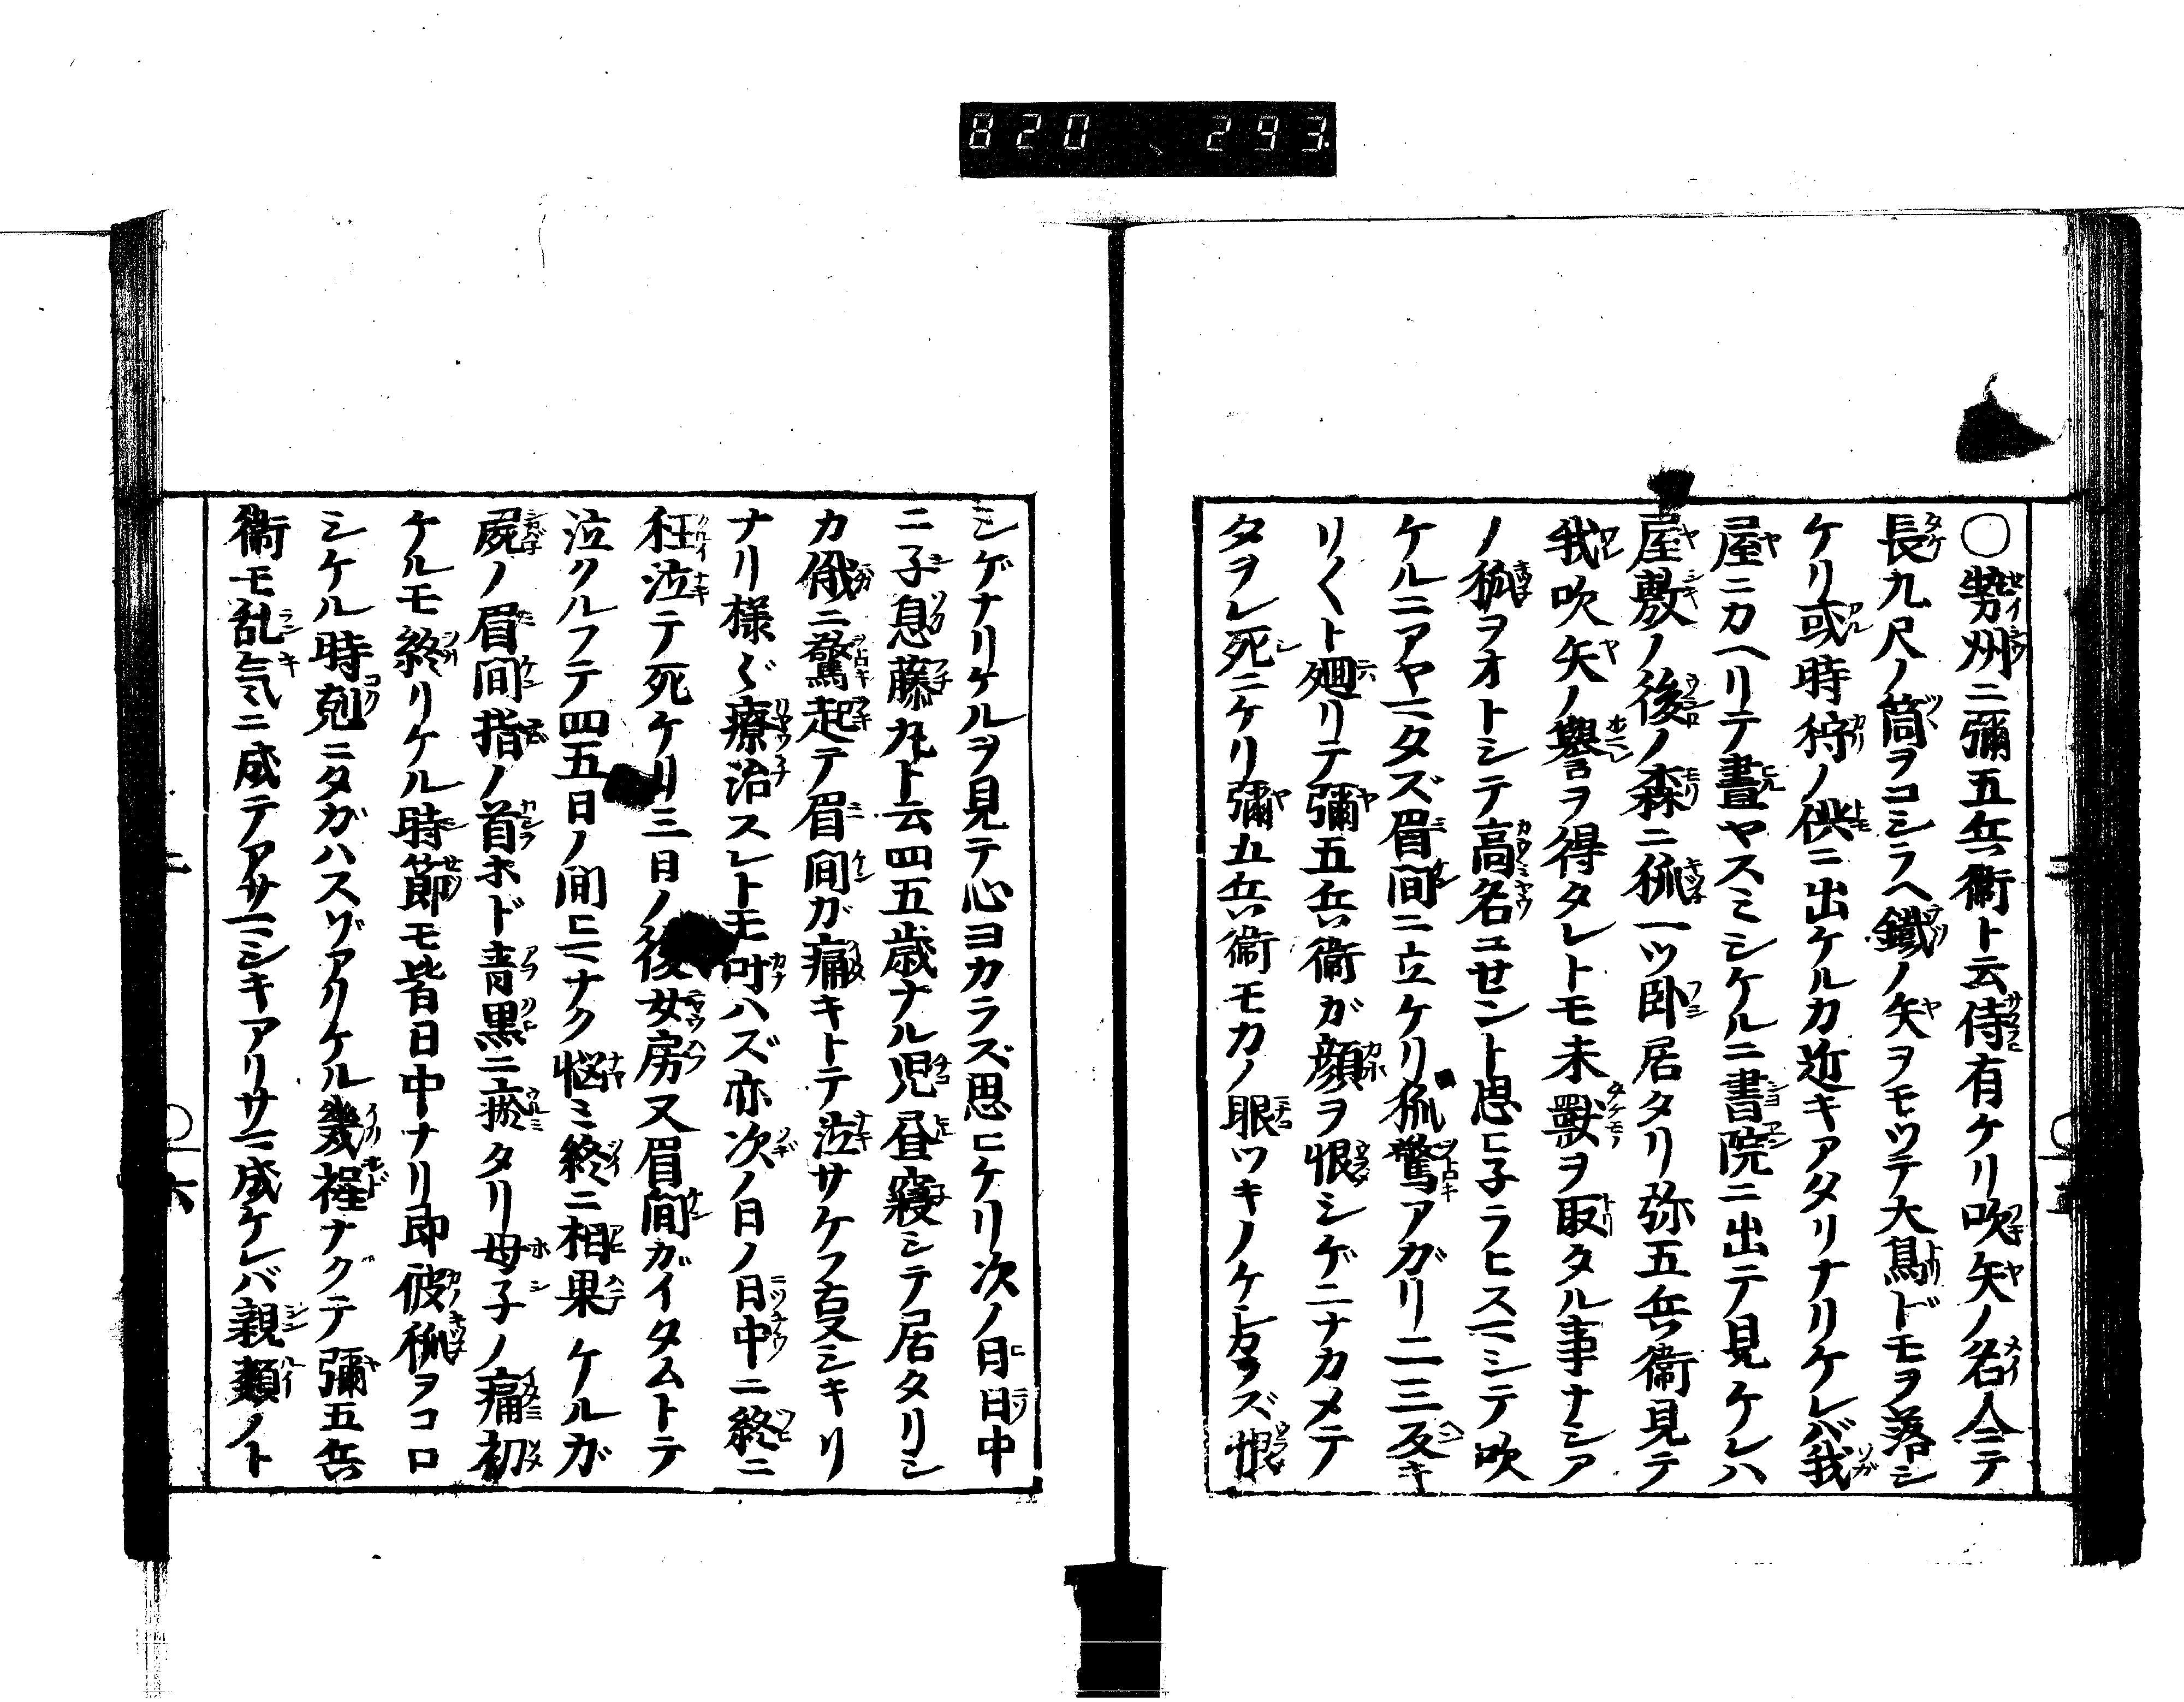 820 293
〇勢州ニ彌五兵衛ト云侍有ケリ吹矢ノ名人ニテ
長九尺ノ筒ヲコシラヘ鐵ノ矢ヲモツテ大鳥ドモヲ落シ
ケリ或時狩ノ供ニ出ケルカ近キアタリナリケレバ我
屋ニカヘリテ晝ヤスミシケルニ書院ニ出テ見ケレハ
屋敷ノ後ノ森ニ狐一ツ卧居タリ弥五兵衛見テ
我吹矢ノ譽ヲ得タレトモ未獸ヲ取タル事ナシア
ノ狐ヲオトシテ高名ニせント思ヒ子ラヒスマシテ吹
ケルニアヤマタズ眉間ニ立ケリ狐驚アガリ二三反キ
リ〱ト廻リテ彌五兵衛が顔ヲ恨シゲニナカメテ
タヲレ死ニケリ彌五兵衛モカノ眼ツキノケシカラズ恨
シゲナリケルヲ見テ心ヨカラズ思ヒケリ次ノ日日中
ニ子息藤丸ト云四五歳ナル児昼寝シテ居タリシ
カ俄ニ驚起テ眉間が痛キトテ泣サケフ叓シキリ
ナリ様〻療治スレトモ叶ハズ亦次ノ日ノ日中ニ終ニ
狂泣テ死ケリ三日ノ後女房又眉間がイタムトテ
泣クルフテ四五日ノ間ヒマナク悩ミ終ニ相果ケルガ
屍ノ眉間指ノ首ホド青黒ニ瘀タリ母子ノ痛初
ケルモ終リケル時節モ皆日中ナリ即彼狐ヲコロ
シケル時剋ニタガハスゾアリケル幾程ナクテ彌五兵
衛モ乱気ニ成テアサマシキアリサマニ成ケレバ親類ノト
二 〇六